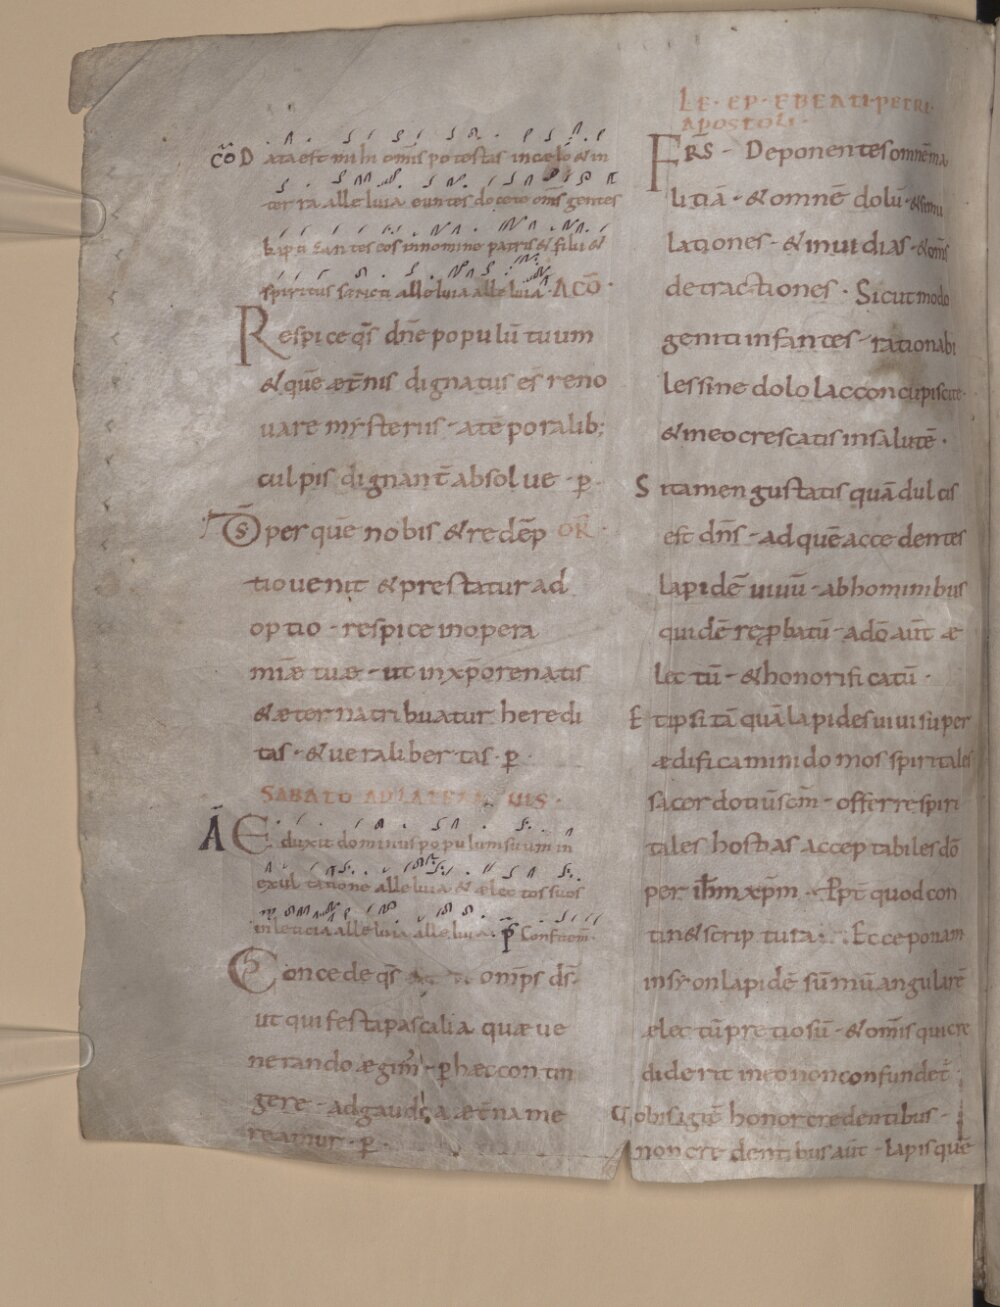 CŌ Data est mihi om̄is potestas in caelo & in
terra alleluia euntes docete om̄s gentes
baptizantes eos in nomine patris & filii &
spiritus sancti alleluia alleluia · AD CŌ ·
Respice qs̄ dn̄e populū tuum
& quē aet̄nis dignatus es reno
uare mysteriis · a tēporalib;
culpis dignant̄ absolue · p̄ ·
D̄s per quē nobis & redēp OR̄ ·
tio uenit & prestatur ad
optio · respice in opera
mīae tuae · ut in xp̄o renatis
& aeterna tribuatur heredi
tas · & uera libertas · p̄
SABATO AD LATERANUIS ·
Ā Eduxit dominus populum suum in
exultatione alleluia & aelectos suos
in leticia alleluia alleluia · p̄s Confitem̄ ·
Concede qs̄ omp̄s ds̄ ·
ut qui festa paschalia quae ue
nerando aegim̄ · p̄ haec contin
gere · ad gaudia aet̄na me
reamur · p̄ ·
LE · EP · E BEATI · PETRI ·
APOSTOLI ·
FRS̄ · Deponentes omnē ma
litiā · & omnē dolū · & simu
lationes · & inuidias · & om̄s
detractiones · Sicut modo
geniti infantes · rationabi
les sine dolo lac concupiscite ·
& in eo crescatis in salutē ·
Si tamen gustatis quā dulcis
est dn̄s · ad quē accedentes
lapidē uiuū · ab hominibus
quidē rep̄batū · a dō aūt ae
lectū · & honorificatū ·
Et ipsi tā quā lapides uiui super
aedificamini domos spiritales
sacerdotiū scm̄ · offerre spiri
tales hostias acceptabiles dō
per ih̄m xp̄m · Ppt̄ quod con
tin& scriptura · Ecce ponam
in syon lapidē sūmū angularē
aelectū pretiosū · & om̄is qui cre
diderit in eo non confundet̄ ·
Uobis igit̄ honor credentibus ·
non credentibus aūt · Lapis quē